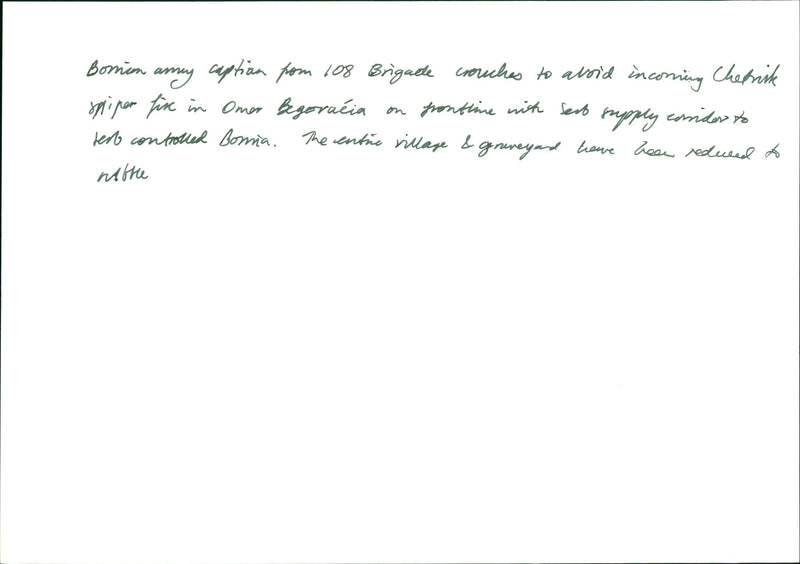 Bosnian army captian from 108 Brigade crouches to avoid incoming Chetnik
sniper fire in Omer Begovača on frontline with Serb supply corridor to
serb controlled Bosnia. The entire village & graveyard have been reduced to
rubble